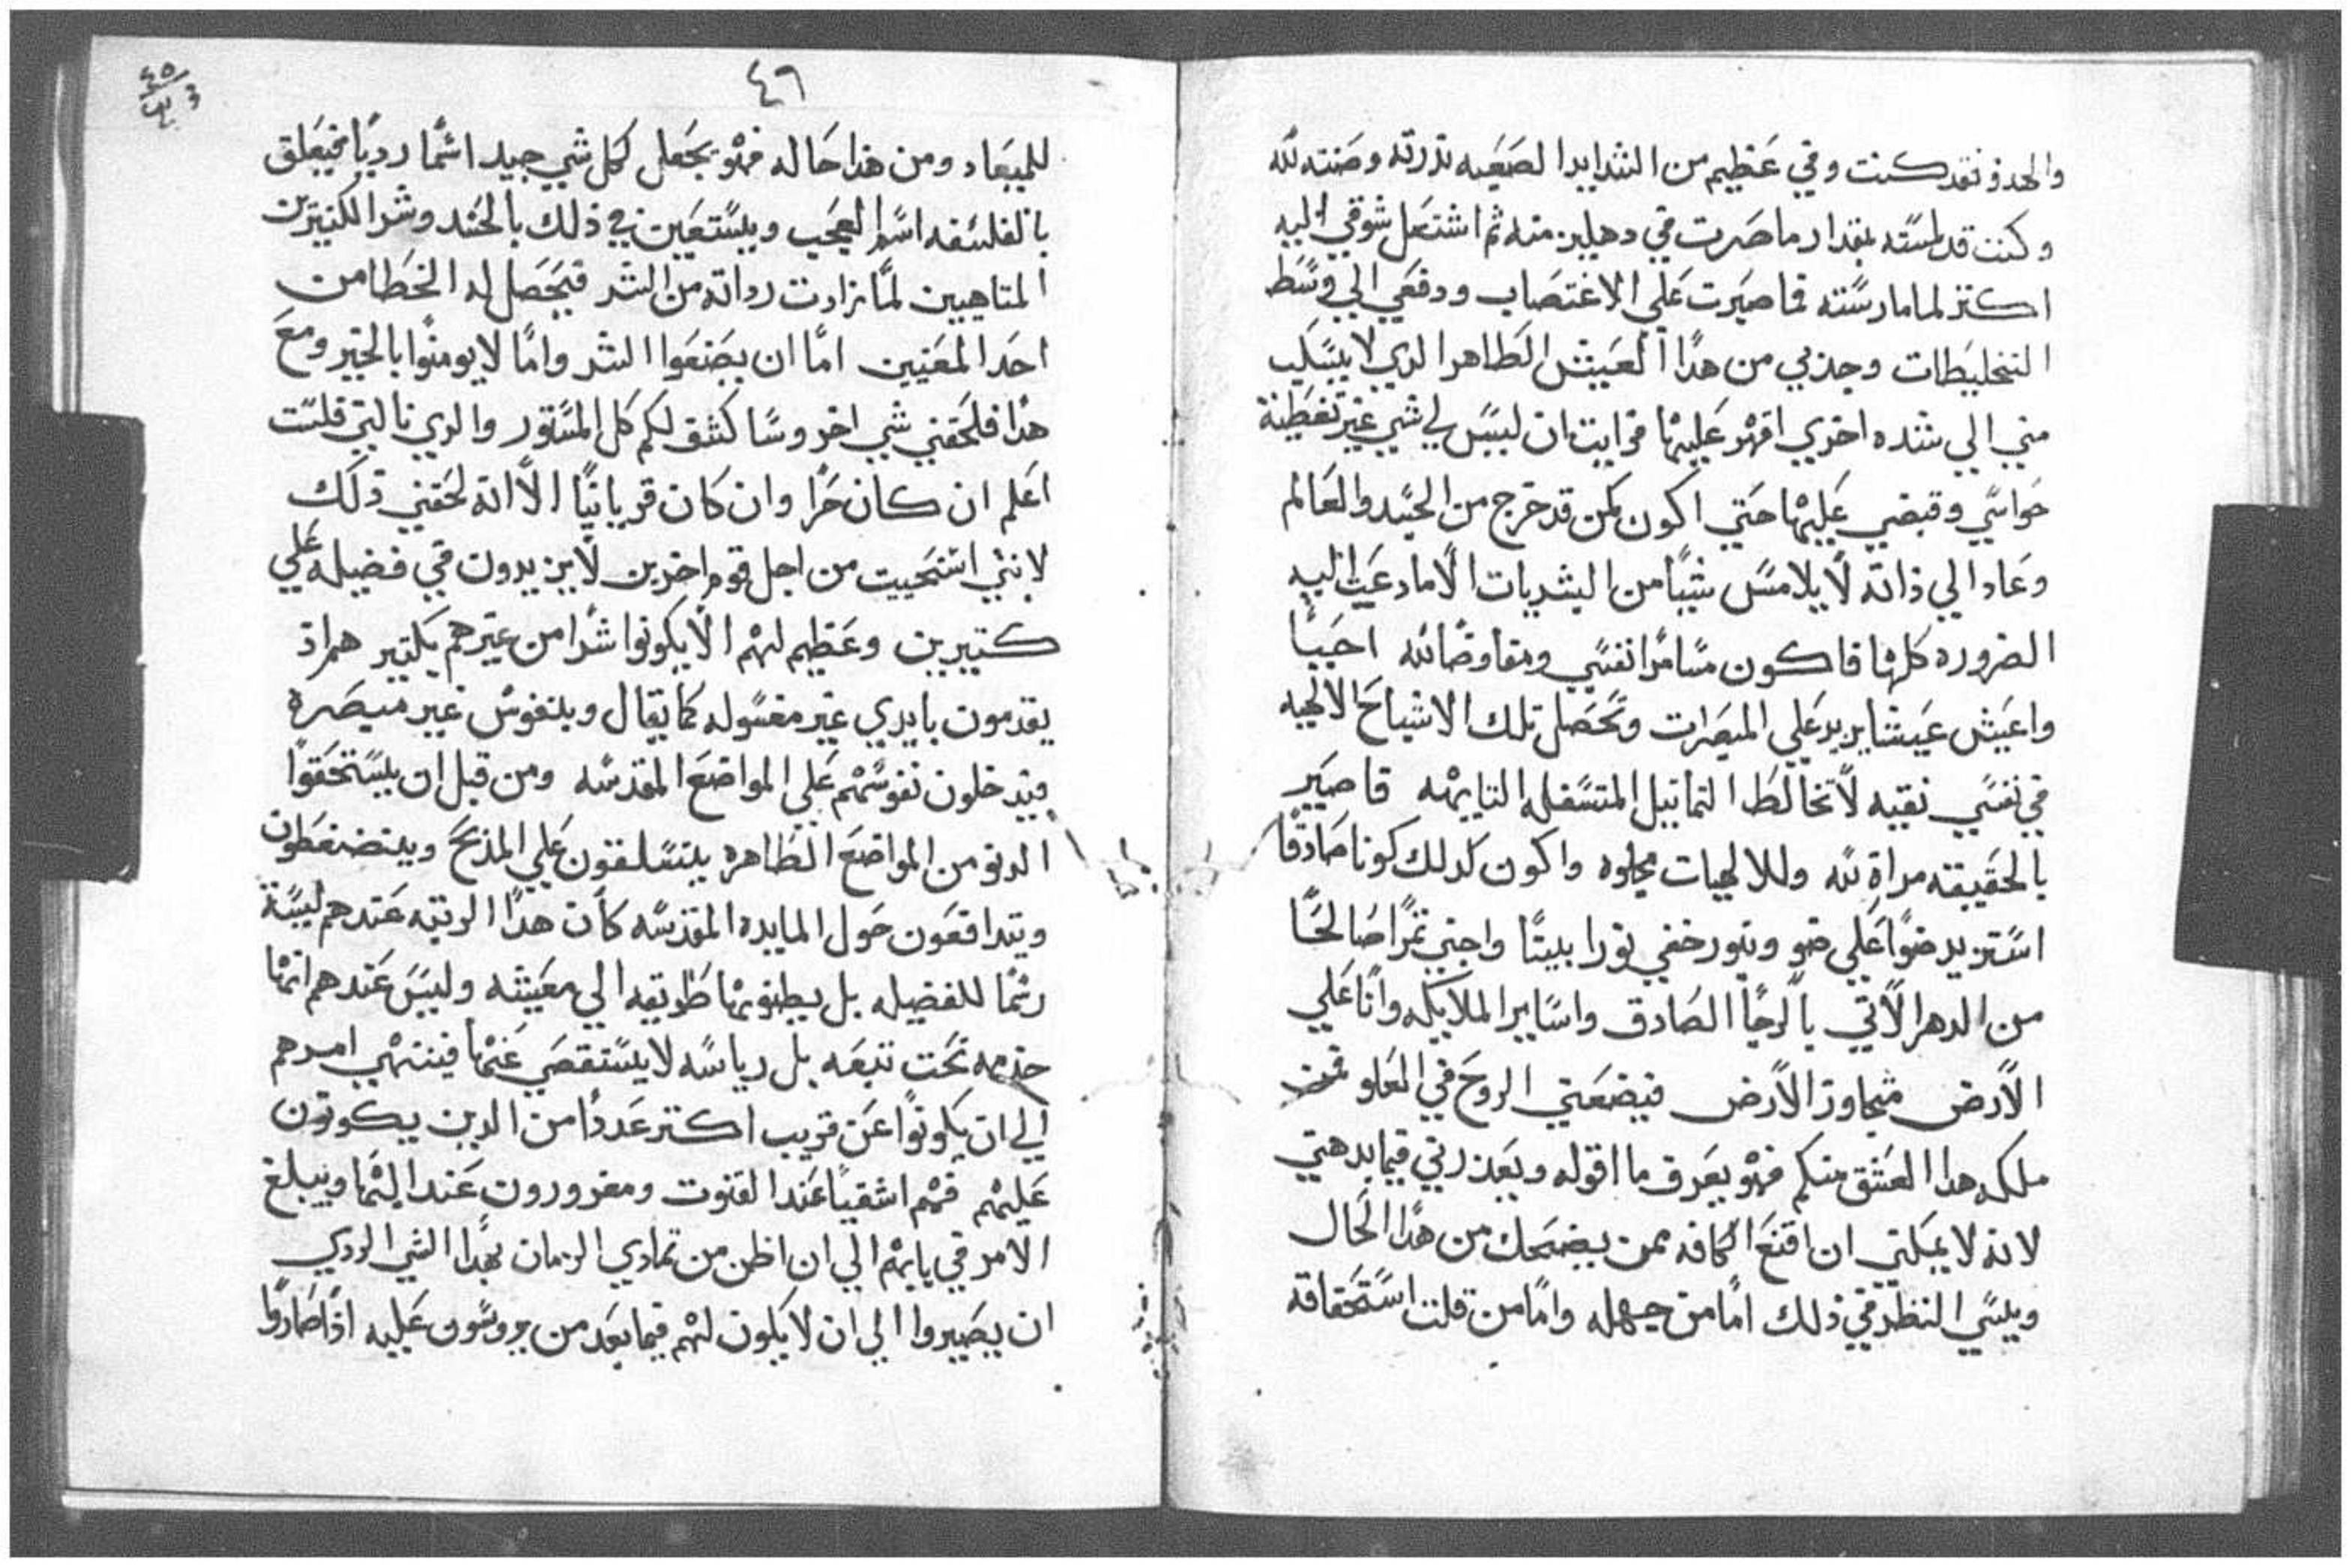 والحدو نقد كنت وفي عظيم من الشدايدا لصعبه ندرته وضنته لله
وكنت قد لمسته بمقدار ما صرت في دهليز منه ثم اشتعل شوقي اليه
اكتر لما مارسته فما صبرت علي الاغتصاب ودفعي الي وسط
التخليطات وجذبي من هدا العيش الطاهر الدي لا يسلب
مني الي شده اخري اقهر عليها فرايت ان ليس لي شي غير تغطية
حواسي وقبضي عليها حتي اكون كمن قد خرج من الجسد والعالم
وعاد الي ذاته لا يلامس شيا من البشريات الا ما دعت اليه
الضروره كلها فاكون مسامرا نفسي ومفاوضا لله احيبا
واعيش عيشا يزيد علي المبصرات وتحصل تلك الاشباح الالهيه
في نفسي نقيه لا تخالط التماتيل المتسفله التايهه فاصير
بالحقيقه مراة لله وللالهيات مجلوه واكون كدلك كونا صادقا
استزيد ضوا علي ضو وبنور خفي نورا بينا واجني تمرا صالحا
من الدهر الاتي بالرجا الصادق واساير الملايكه وانا علي
الارض متجاوز الارض فيضعني الروح في العلو فمن
ملكه هدا العشق منكم فهو يعرف ما اقوله ويعذرني فيما بدهني
لانه لا يمكنني ان اقنع الكافه ممن يضحك من هدا الحال
ويلسي النظر في ذلك اما من جهله واما من قلت استحقاقه
٤٦
٤٥
للميعاد ومن هذا حاله فهو يجعل كل شي جيد اسما رديا فيعلق
بالفلسفه اسم العجب ويستعين في ذلك بالحسد وشر الكتيرين
المتاهبين لما زادت رداته من الشر فيحصل له الخطا من
احد المعنيين اما ان يصنعوا الشر واما لا يومنوا بالخير ومع
هدا فلحقني شي اخر وساكشف لكم كل المستور والدي نالني فلست
اعلم ان كان حرا وان كان قربانيا الا انه لحقني ذلك
لانني استحييت من اجل قوم اخرين لا يزيدون في فضيله علي
كتيرين وعظيم لهم الا يكونوا شرا من غيرهم بكتير هم اذ
يقدمون بايدي غير مغسوله كما يقال وبنفوس غير مبصره
فيدخلون نفوسهم علي المواضع المقدسه ومن قبل ان يستحقوا
الدنو من المواضع الطاهره يتسلقون علي المذبح ويتضغطون
ويتدافعون حول المايده المقدسه كان هدا الرتبه عندهم ليسة
رسما للفضيله بل يظنونها طريقه الي معيشه وليس عندهم انها
خدمه تحت تبعه بل رياسه لا يستقصي عنها فينتهي امرهم
الي ان يكونوا عن قريب اكتر عددا من الدين يكونون
عليهم فهم اشقيا عند القنوت ومغرورون عند البها ويبلغ
الامر في بابهم الي ان اظن من تمادي الزمان بهدا الشي الردي
ان يصيروا الي ان لا يكون لهم فيما بعد من يروسون عليه اذا صاروا